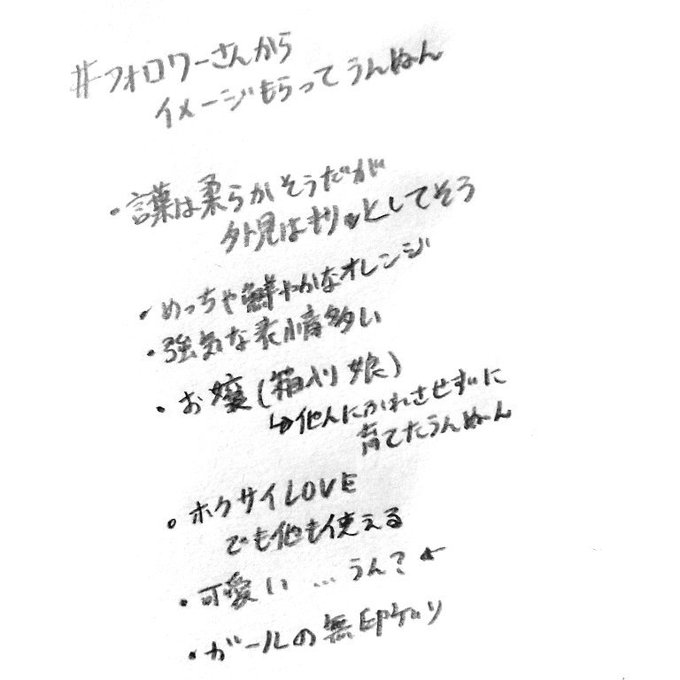 #フォロワーさんから
イメージもらってうんぬん
・言葉は柔らかそうだが
外見はキリッとしてそう
・めっちゃ鮮やかなオレンジ
・強気な表情多い
・お嬢(箱入り娘)
↳他人にふれさせずに
育てたうんぬん
・ホクサイLOVE
でも他も使える
・可愛い…うん?←
・ガールの無印ケリ